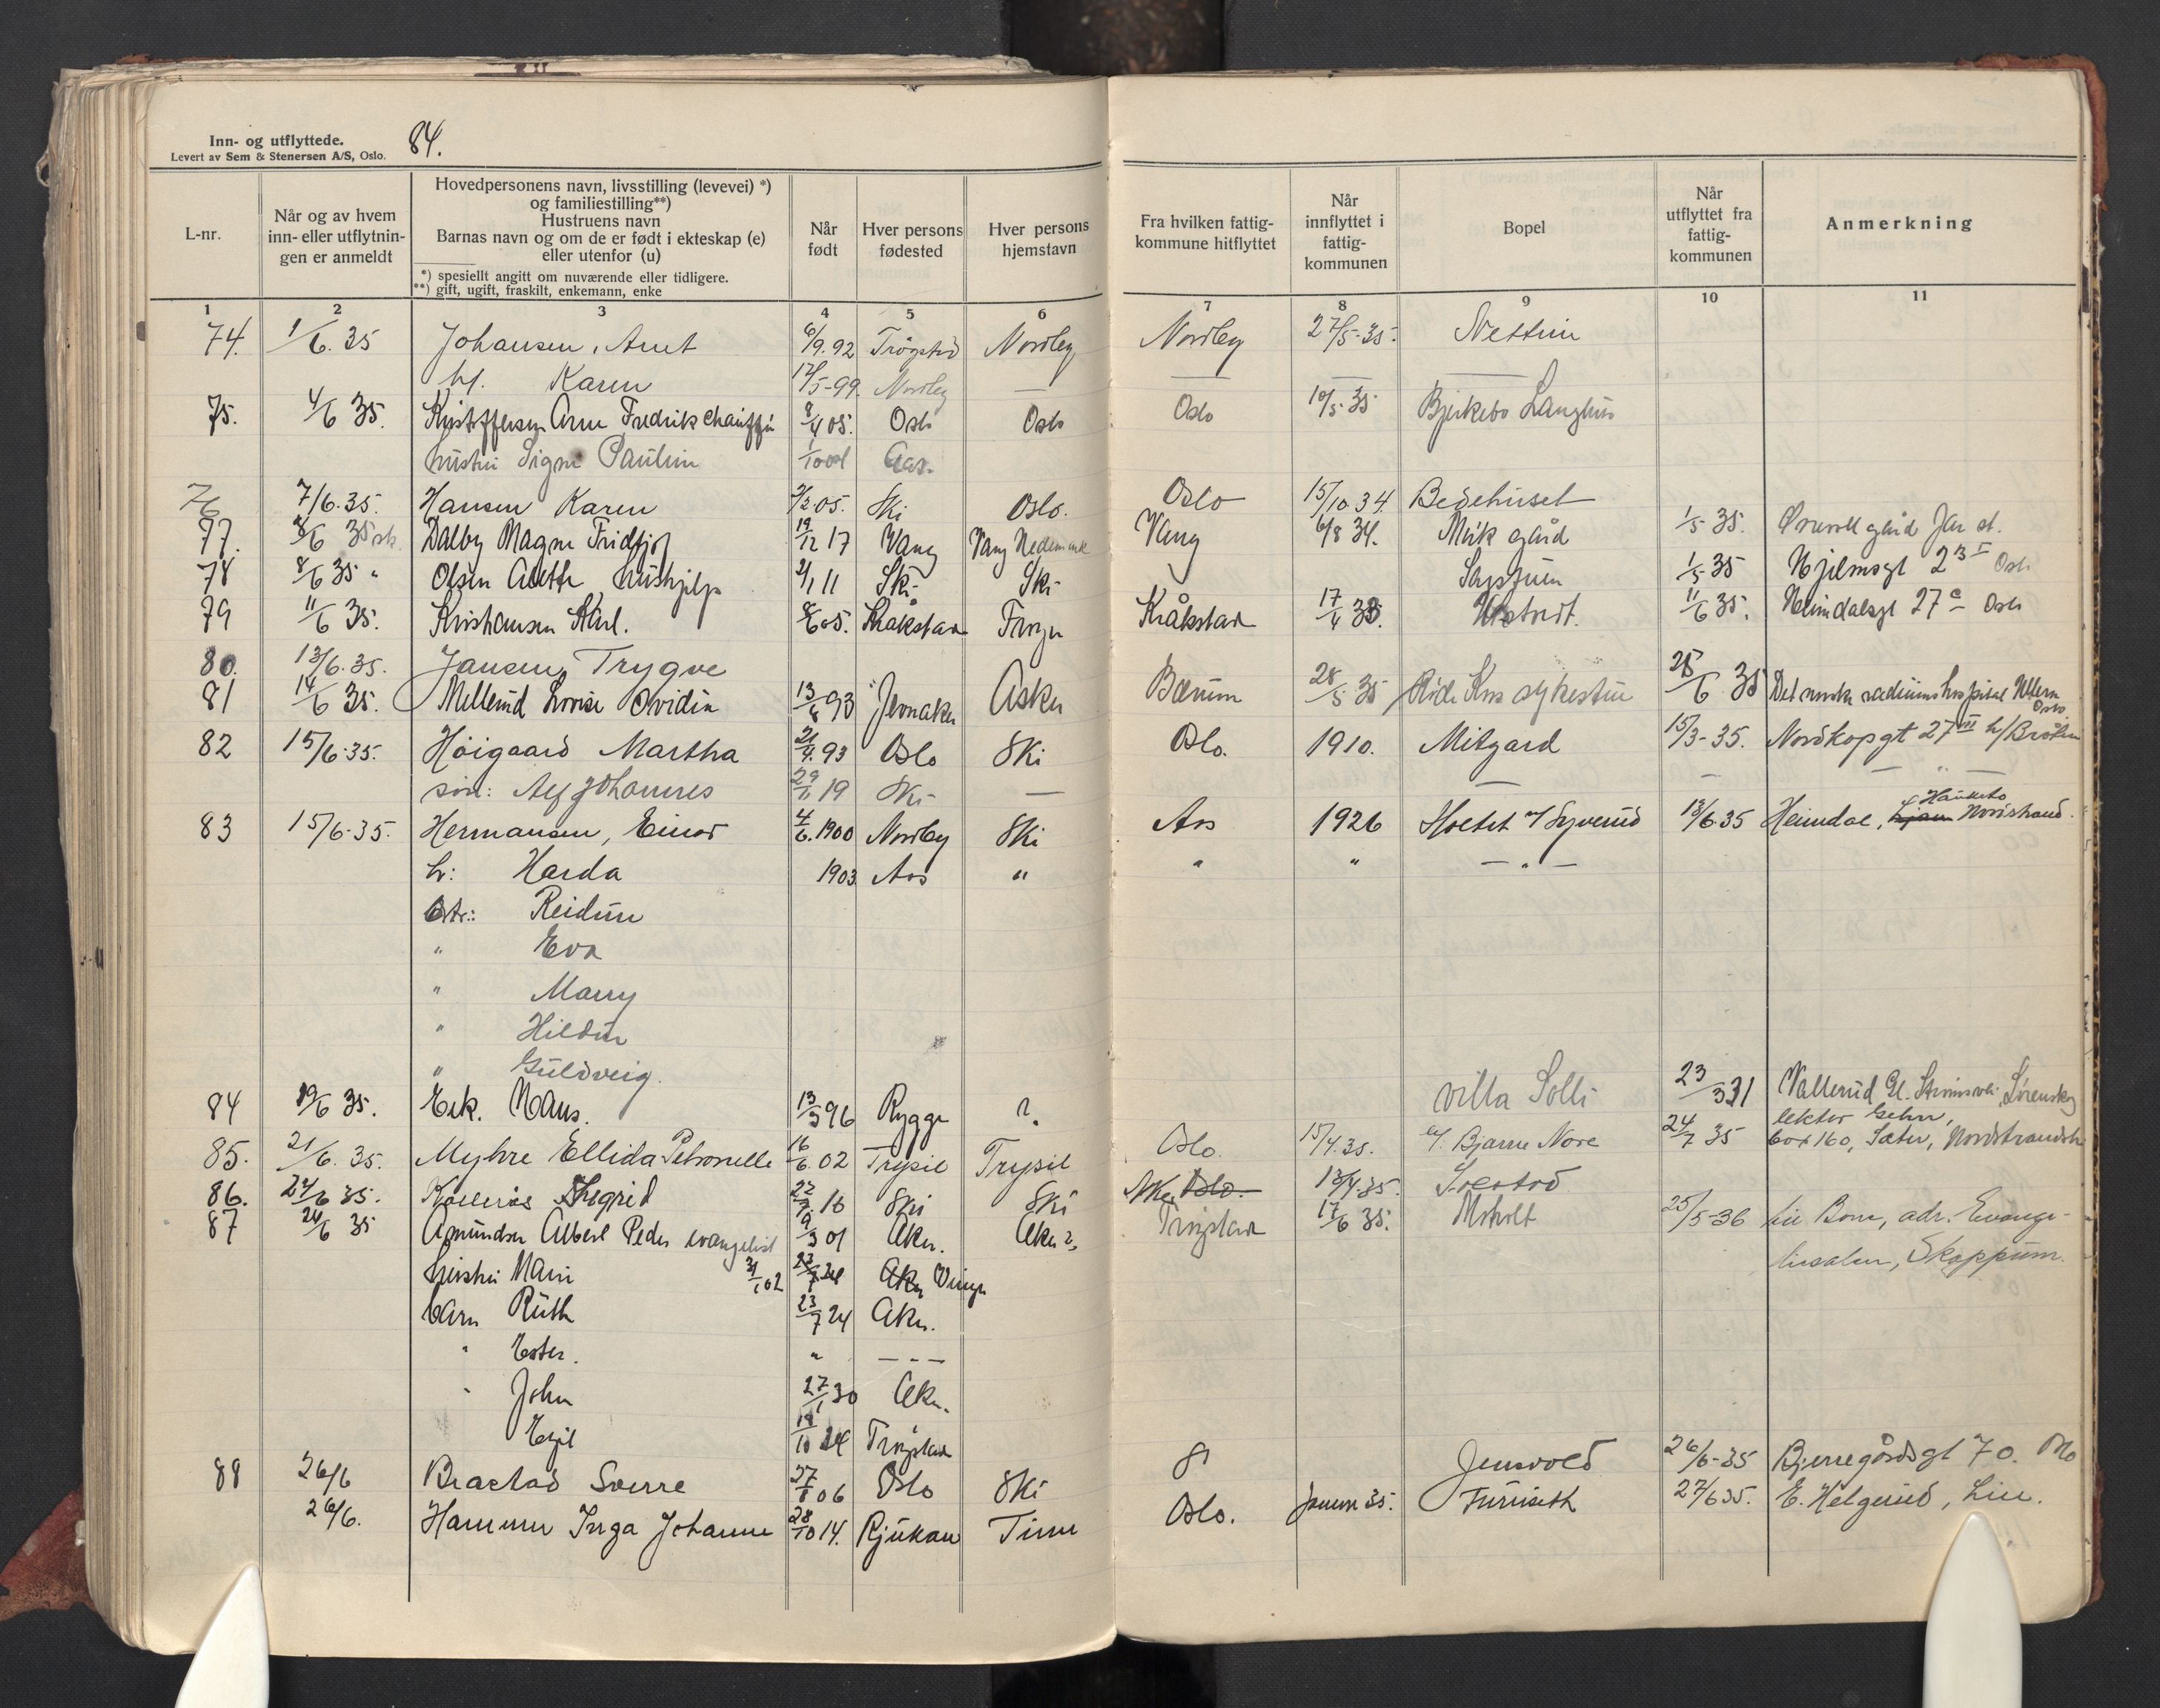 Inn- og utflyttede.
Levert av Sem & Stenersen A/S, Oslo.
84.
L-nr.
Når og av hvem inn- eller utflytnin- gen er anmeldt
Hovedpersonens navn, livsstilling (levevei) *)
og familiestilling**)
Hustruens navn
Barnas navn og om de er født i ekteskap (e)
eller utenfor (u)
*) spesiellt angitt om nuværende eller tidligere.
**) gift, ugift, fraskilt, enkemann, enke
Når født
Hver persons fødested
Hver persons hjemstavn
Fra hvilken fattig- kommune hitflyttet
Når innflyttet i fattig- kommunen
Bopel
Når utflyttet fra fattig- kommunen
Anmerkning
1 2 3 4 5 6 7 8 9 10 11
74. 1/6. 35 Johansen, Arnt 6/9. 92 Trøgstad Nordby Nordby 27/5-35.
Karen 5-99. Nordby —
75. 4/6 35. Kristoffersen Arne Fredrik chauffør 8/4 05. Oslo Oslo Oslo 10/5 35 Bjerkebo Langhus
hustru Signe Pauline Aas.
76 7/6. 35. Hansen Karen 2/2 05. Ski Oslo. Oslo 15/10 34. Bedehuset
77. 8/6 35 Dalby Magne Fridtjof 19/12 17 Vang Vang Hedemark Vang 6/8 34. Mørk gård 1/5 35. gård Jar st.
78 8/6 35 " Olsen hushjelp 2/1 11 Ski Ski 1/5 35 Hjelmsgt 23 I Oslo
79 11/6 35. Kristiansen Karl. 8/6 05. Kråkstad Frogn Kråkstad 17/4 33. 11/6 35. Heimdalsgt 27 Oslo
80. 13/6. 35. Jansen Trygve
81 14/6 35. Mellerud Lovise Ovidia 13/8 93 Jevnaker Asker Bærum 28/5 35 Røde Kors sykestue 25/6 35 Det norske radiumhospital Ullern Oslo
82 15/6. 35. Höigaard Martha 21/9. 93 Oslo Ski Oslo. 1910. Mitgard 15/3-35. Nordkapgt 27 III
søn: Alf Johannes 29/11 19 Ski — — " —
83 15/6. 35. Hermansen, Einar 4/6. 1900 Nordby Ski Aas 1926 Holtet v/ Syverud 13/6 35 Heimdal, Hauketo Nordstrand.
h: Harda 1903 Aas " " " — " —
btr: Reidun
" Eva
" Marry
" Hildur
" Guldveig.
84 19/6 35. Erk. Hans. 13/3 96 Rygge ? Villa Solli 23/3 31 Vallerud Gl. Lørenskog
85. 21/6. 35. Myhre Ellida Petronelle 16/6. 02 Trysil Trysil Oslo. 15/4. 35. c/. Bjarne Nore 24/7 35 lektor box 160, Sæter, Nordstrandsh
86. 24/6 35. 16 Ski Ski Aker Oslo. 13/4. 35.
87 24/6 35 Amundsen Albert Peder evangelist 9/3 01 Aker. Aker ? Trøgstad 17/6 35. 25/5-36 Lie Born, adr. Evange-
hustru Marie 02 Aker liesalen, Skoppum.
barn Ruth 23/7 24 Aker.
" Ester. " — " —
" John 27/1 30 Aker.
Egil Trøgstad
88 26/6 Braatad Sverre 27/8 06 Oslo Ski Jensvold 26/6-35 Bjerregårdsgt 70. Oslo
26/6. Hammer Inga Johanne 28/10 14. Rjukan Tinn Oslo. januar 35. Furuseth 27/6 35. E. Helgerud, Lier.